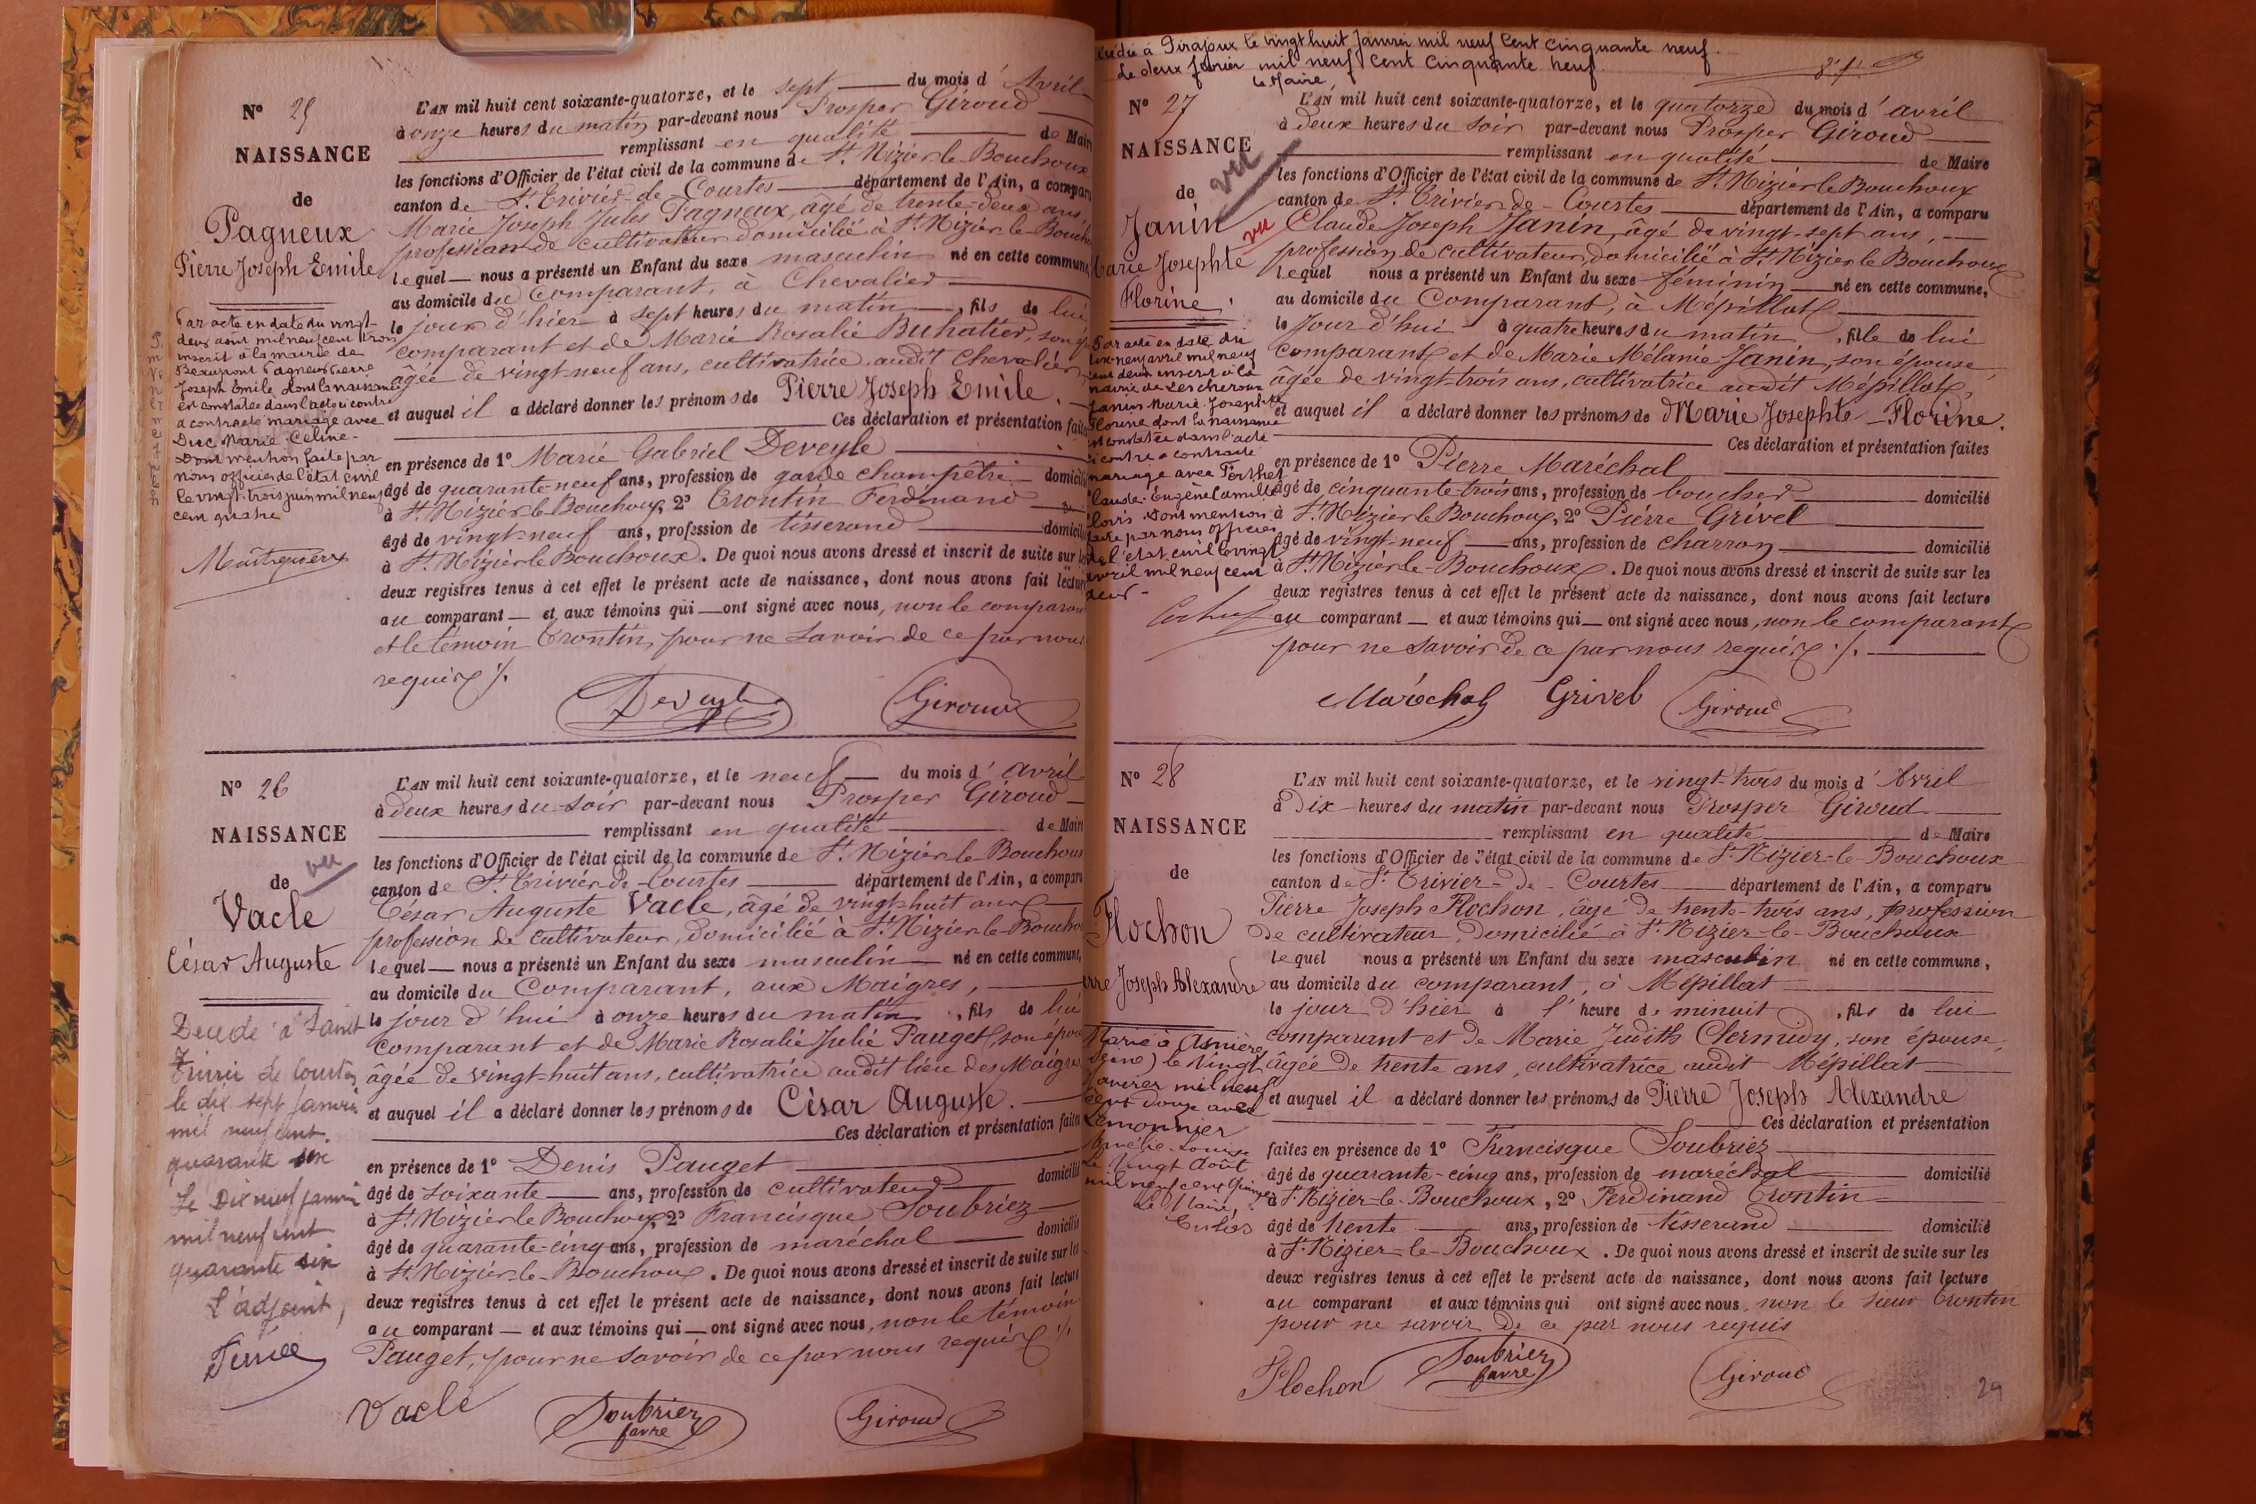 N° 25
NAISSANCE
de
Pagneux
Pierre Joseph Emile
Par acte en date du vingt-
deux aout mil neuf cent trois
inscrit à la mairie de
Beaupont Pagneux Pierre
Joseph Emile dont la naissance
est constatée dans l'acte ci contre
a contracté mariage avec
Duc Marie Céline.
Dont mention faite par
nous officier de l'état civil
le vingt-trois juin mil neuf
cent quatre
L'AN mil huit cent soixante-quatorze, et le sept du mois d'Avril
à onze heures du matin par-devant nous Prosper Giroud
remplissant en qualité de Maire
les fonctions d'Officier de l'état civil de la commune de St Nizier le Bouchoux
canton de St Trivier-de-Courtes département de l'Ain, a comparu
Marie Joseph Jules Pagneux, âgé de trente-deux ans,
profession de cultivateur domicilié à St Nizier le Bouchoux
lequel nous a présenté un Enfant du sexe masculin né en cette commune,
au domicile du comparant, à Chevalier
le jour d'hier à sept heures du matin, fils de lui
comparant et de Marie Rosalie Buhatier, son
âgée de vingt-neuf ans, cultivatrice audit Chevalier,
et auquel il a déclaré donner les prénoms de Pierre Joseph Emile.
Ces déclaration et présentation faites
en présence de 1° Marie Gabriel Deveyle
âgé de quarante-neuf ans, profession de garde champêtre domicilié
à St Nizier le Bouchoux, 2° Crontin Ferdinand
âgé de vingt-neuf ans, profession de tisserand domicilié
à St Nizier le Bouchoux. De quoi nous avons dressé et inscrit de suite sur les
deux registres tenus à cet effet le présent acte de naissance, dont nous avons fait lecture
au comparant et aux témoins qui ont signé avec nous, non le comparant
et le témoin Crontin, pour ne savoir de ce par nous
requis ./.
Deveyle Giroud
N° 26
NAISSANCE
de
vu
Vacle
César Auguste
Décédé à Saint
Trivier de Courtes
le dix sept janvier
mil neuf cent
quarante six
Le Dix neuf janvier
mil neuf cent
quarante six
L'adjoint,
L'AN mil huit cent soixante-quatorze, et le neuf du mois d'avril
à deux heures du soir par-devant nous Prosper Giroud
remplissant en qualité de Maire
les fonctions d'Officier de l'état civil de la commune de St Nizier le Bouchoux
canton de St Trivier-de-Courtes département de l'Ain, a comparu
César Auguste Vacle, âgé de vingt-huit ans
profession de cultivateur, domicilié à St Nizier-le-Bouchoux
lequel nous a présenté un Enfant du sexe masculin né en cette commune,
au domicile du Comparant, aux Maigres,
le jour d'hui à onze heures du matin, fils de lui
comparant et de Marie Rosalie Julie Pauget, son épouse
âgée de vingt-huit ans, cultivatrice audit lieu des Maigres
et auquel il a déclaré donner les prénoms de César Auguste.
Ces déclaration et présentation faites
en présence de 1° Denis Pauget
âgé de soixante ans, profession de cultivateur domicilié
à St Nizier le Bouchoux, 2° Francisque Soubriez
âgé de quarante-cinq ans, profession de maréchal domicilié
à St Nizier-le-Bouchoux. De quoi nous avons dressé et inscrit de suite sur les
deux registres tenus à cet effet le présent acte de naissance, dont nous avons fait lecture
au comparant et aux témoins qui ont signé avec nous, non le témoin
Pauget, pour ne savoir de ce par nous requis ./.
Vacle Soubriez favre Giroud
Pirajoux le vingt huit janvier mil neuf cent cinquante neuf.
Le deux février mil neuf cent cinquante neuf.
Le Maire
N° 27
NAISSANCE
de
vu
Janin
vu
Marie Josephte
Florine
Par acte en date du
dix-neuf avril mil neuf
cent deux inscrit à la
mairie de Lescheroux
Janin Marie Josephte
Florine dont la naissance
est constatée dans l'acte
ci contre a contracté
mariage avec Perthet
Claude-Eugène Camille
Clovis. Dont mention
faite par nous officier
de l'état civil le vingt
avril mil neuf cent
deux.
L'AN mil huit cent soixante-quatorze, et le quatorze du mois d'avril
à deux heures du soir par-devant nous Prosper Giroud
remplissant en qualité de Maire
les fonctions d'Officier de l'état civil de la commune de St Nizier le Bouchoux
canton de St Trivier-de-Courtes département de l'Ain, a comparu
Claude Joseph Janin, âgé de vingt-sept ans,
profession de cultivateur, domicilié à St Nizier le Bouchoux
lequel nous a présenté un Enfant du sexe féminin né en cette commune,
au domicile du Comparant, à Mépillat
le Jour d'hui à quatre heures du matin, fille de lui
comparant et de Marie Mélanie Janin, son épouse
âgée de vingt-trois ans, cultivatrice audit Mépillat,
et auquel il a déclaré donner les prénoms de Marie Josephte Florine.
Ces déclaration et présentation faites
en présence de 1° Pierre Maréchal
âgé de cinquante trois ans, profession de boucher domicilié
à St Nizier le Bouchoux, 2° Pierre Grivel
âgé de vingt-neuf ans, profession de charron domicilié
à St Nizier-le-Bouchoux. De quoi nous avons dressé et inscrit de suite sur les
deux registres tenus à cet effet le présent acte de naissance, dont nous avons fait lecture
au comparant et aux témoins qui ont signé avec nous, non le comparant
pour ne savoir de ce par nous requis ./.
Maréchal Grivel Giroud
N° 28
NAISSANCE
de
Flochon
Pierre Joseph Alexandre
Marié à Asnières
(Seine) le vingt
janvier mil neuf
cent douze avec
Lemonnier
Amélie Louise
Le vingt Août
mil neuf cent quinze
Le Maire,
L'AN mil huit cent soixante-quatorze, et le vingt-trois du mois d'Avril
à Dix heures du matin par-devant nous Prosper Giroud
remplissant en qualité de Maire
les fonctions d'Officier de l'état civil de la commune de St Nizier-le-Bouchoux
canton de St Trivier-de-Courtes département de l'Ain, a comparu
Pierre Joseph Flochon, âgé de trente-trois ans, profession
de cultivateur, domicilié à St Nizier-le-Bouchoux
lequel nous a présenté un Enfant du sexe masculin né en cette commune,
au domicile du comparant, à Mépillat
le jour d'hier à l'heure de minuit, fils de lui
comparant et de Marie Judith Clermidy, son épouse,
âgée de trente ans, cultivatrice audit Mépillat
et auquel il a déclaré donner les prénoms de Pierre Joseph Alexandre
Ces déclaration et présentation
faites en présence de 1° Francisque Soubriez
âgé de quarante-cinq ans, profession de maréchal domicilié
à St Nizier-le-Bouchoux, 2° Ferdinand Crontin
âgé de trente ans, profession de tisserand domicilié
à St Nizier-le-Bouchoux. De quoi nous avons dressé et inscrit de suite sur les
deux registres tenus à cet effet le présent acte de naissance, dont nous avons fait lecture
au comparant et aux témoins qui ont signé avec nous, non le sieur Crontin
pour ne savoir de ce par nous requis
Flochon Soubriez favre Giroud
29